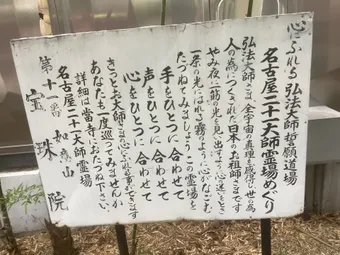 心ふれる 弘法大師誓願道場
名古屋二十一大師霊場めぐり
弘法大師さまは、全宇宙の真理を感得し世の為
人の為につくされた日本のお祖師さまです
やみ夜に一筋の光を見い出す
一条の光にはれる霧よう 心がなごむ
たづねてみましょう この霊場を
手をひとつに 合わせて
声をひとつに 合わせて
心をひとつに 合わせて
きっとお大師さまの
あなたも一度巡ってみませんか
詳細は当寺におたづね下さい。
名古屋二十一大師霊場
第十一番 如意山
宝珠院